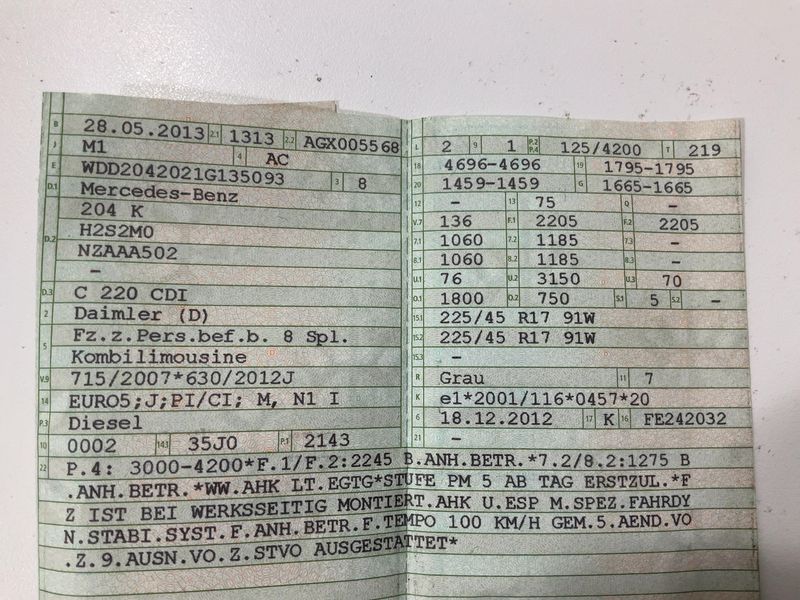 B 28.05.2013 2.1 1313 2.2 AGX005568
J M1 4 AC
E WDD2042021G135093 3 8
D.1 Mercedes-Benz
204 K
D.2 H2S2M0
NZAAA502
–
D.3 C 220 CDI
2 Daimler (D)
5 Fz.z.Pers.bef.b. 8 Spl.
Kombilimousine
V.9 715/2007*630/2012J
14 EURO5;J;PI/CI; M, N1 I
P.3 Diesel
10 0002 14.1 35J0 P.1 2143
L 2 9 1 P.2 P.4 125/4200 T 219
18 4696-4696 19 1795-1795
20 1459-1459 G 1665-1665
12 – 13 75 Q –
V.7 136 F.1 2205 F.2 2205
7.1 1060 7.2 1185 7.3 –
8.1 1060 8.2 1185 8.3 –
U.1 76 U.2 3150 U.3 70
O.1 1800 O.2 750 S.1 5 S.2 –
15.1 225/45 R17 91W
15.2 225/45 R17 91W
15.3 –
R Grau 11 7
K e1*2001/116*0457*20
6 18.12.2012 17 K 16 FE242032
21 –
22 P.4: 3000-4200*F.1/F.2:2245 B.ANH.BETR.*7.2/8.2:1275 B
.ANH.BETR.*WW.AHK LT.EGTG*STUFE PM 5 AB TAG ERSTZUL.*F
Z IST BEI WERKSSEITIG MONTIERT.AHK U.ESP M.SPEZ.FAHRDY
N.STABI.SYST.F.ANH.BETR.F.TEMPO 100 KM/H GEM.5.AEND.VO
.Z.9.AUSN.VO.Z.STVO AUSGESTATTET*